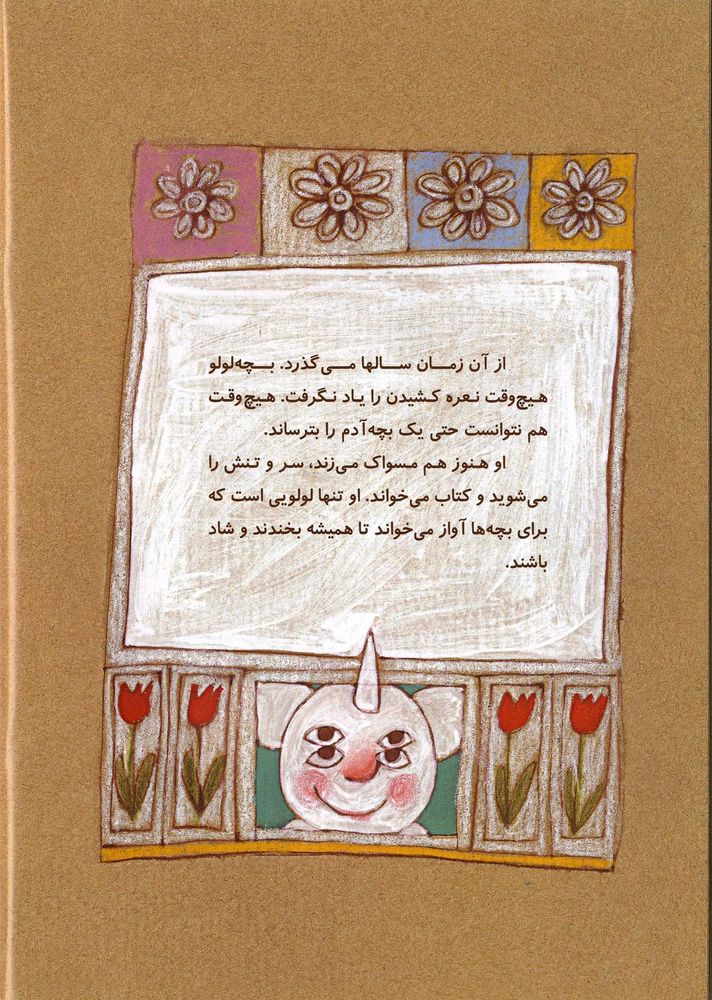 از آن زمان سالها می‌گذرد. بچه‌لولو
هیچ‌وقت نعره کشیدن را یاد نگرفت. هیچ‌وقت
هم نتوانست حتی یک بچه‌آدم را بترساند.
او هنوز هم مسواک می‌زند، سر و تنش را
می‌شوید و کتاب می‌خواند. او تنها لولویی است که
برای بچه‌ها آواز می‌خواند تا همیشه بخندند و شاد
باشند.